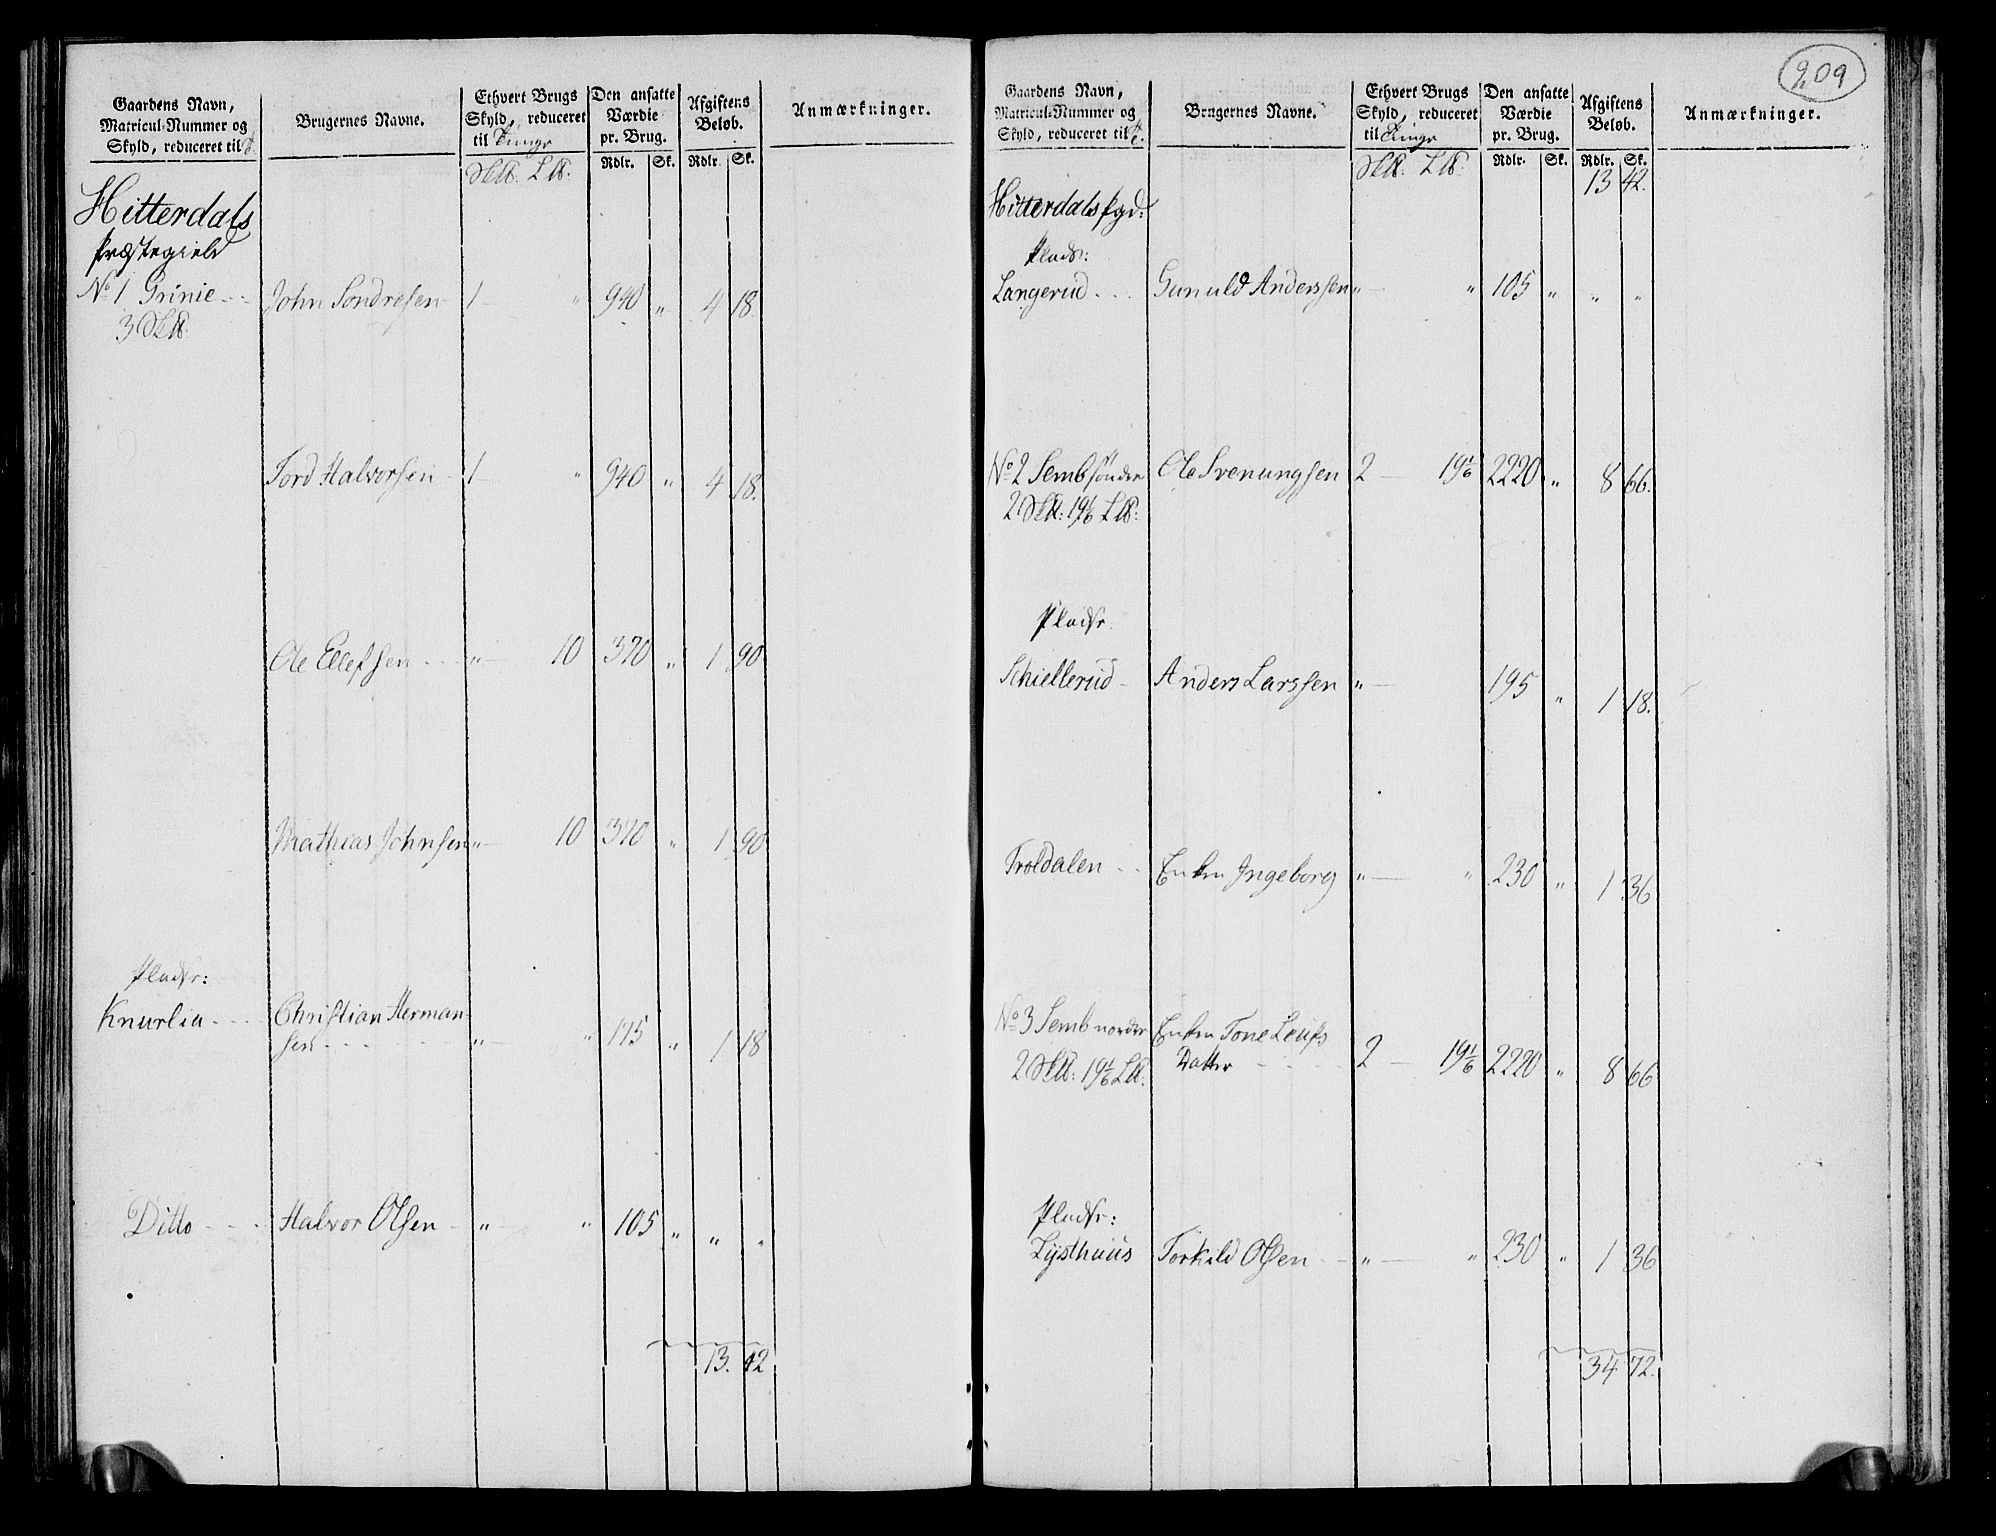 209
Gaardens Navn, Matricul-Nummer og Skyld, reduceret til
Brugernes Navne.
Ethvert Brugs Skyld, reduceret til Tunge
Den ansatte Værdie pr. Brug.
Afgiftens Beløb.
Anmærkninger.
Sk℔: L℔:
Rdlr. Sk. Rdlr. Sk.
Hitterdals
Præstegield
No 1 Grinie John Sondresen 1 — " 940 " 4 18.
3 Sk℔.
Tord Halvorsen 1 — " 940 " 4 18.
Ole Ellefsen " — 10 370 " 1 90
Mathias Johnsen " — 10 370 " 1 90
Pladse:
Knurlia Christian Herman-
sen " — " 175 " 1 18
Ditto Halvor Olsen " — " 105 " " "
13. 42
Gaardens Navn, Matricul-Nummer og Skyld, reduceret til
Brugernes Navne.
Ethvert Brugs Skyld, reduceret til Tunge
Den ansatte Værdie pr. Brug.
Afgiftens Beløb.
Anmærkninger.
Sk℔: L℔:
Rdlr. Sk. Rdlr. Sk.
13 42.
Hitterdals Pgd:
Plads:
Langerud Gunuld Anderssen " — " 105 " " "
No 2 Semb sönder Ole Svenungsen 2 — 19 1/6 2220 " 8 66.
2 Sk℔: 19 1/6 L℔:
Pladse
Schiellerud Anders Larssen " — 195 " 1 18.
Troldalen Enken Ingeborg " — " 230 " 1 36
No 3 Semb norder Enken Tone Leufs
2 Sk℔: 19 1/6 L℔. Datter 2 — 19 1/6 2220 " 8 66
Pladse:
Lysthuus Torkild Olsen " — " 230 " 1 36
34 72.